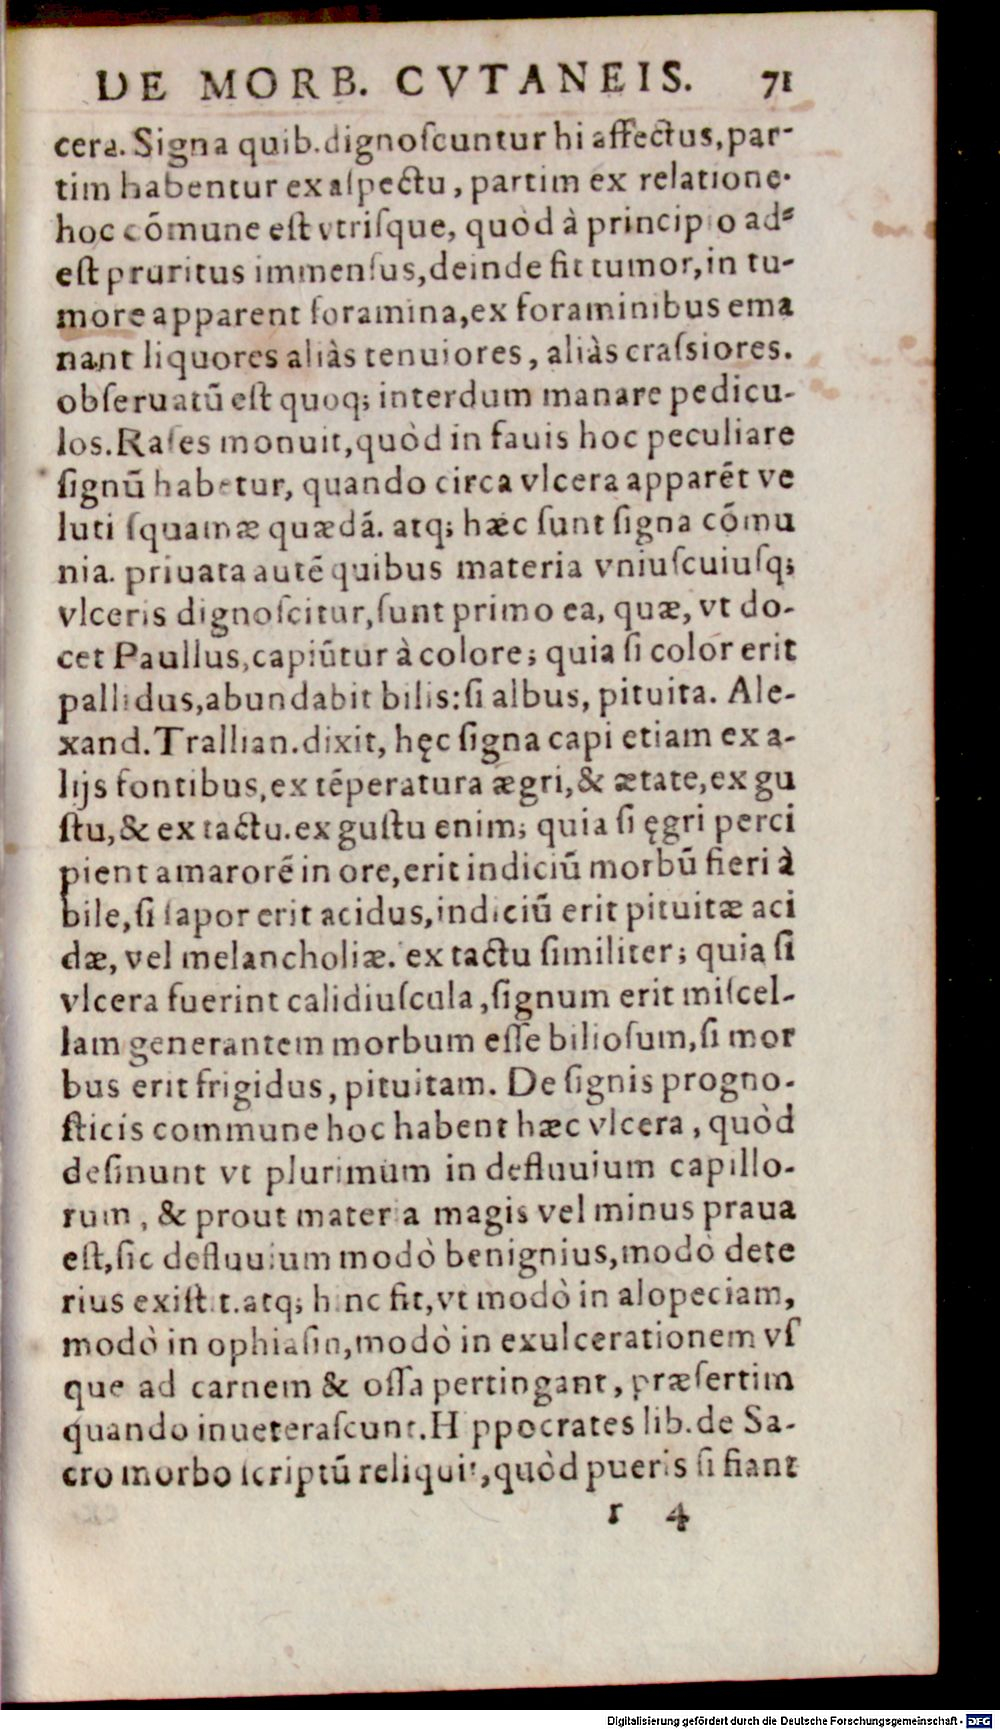 DE MORB. CVTANEIS. 71
cera. Signa quib. dignoſcuntur hi affectus, par-
tim habentur ex aſpectu, partim ex relatione.
hoc cõmune eſt vtriſque, quòd à principio ad-
eſt pruritus immenſus, deinde fit tumor, in tu-
more apparent foramina, ex foraminibus ema
nant liquores aliàs tenuiores, aliàs craſsiores.
obſeruatũ eſt quoq; interdum manare pedicu-
los. Raſes monuit, quòd in fauis hoc peculiare
ſignũ habetur, quando circa vlcera apparẽt ve
luti ſquamæ quædã. atq; hæc ſunt ſigna cõmu
nia. priuata autẽ quibus materia vniuſcuiuſq;
vlceris dignoſcitur, ſunt primo ea, quæ, vt do-
cet Paullus, capiũtur à colore; quia ſi color erit
pallidus, abundabit bilis: ſi albus, pituita. Ale-
xand. Trallian. dixit, hęc ſigna capi etiam ex a-
lijs fontibus, ex tẽperatura ægri, & ætate, ex gu
ſtu, & ex tactu. ex guſtu enim; quia ſi ęgri perci
pient amarorẽ in ore, erit indiciũ morbũ fieri à
bile, ſi ſapor erit acidus, indiciũ erit pituitæ aci
dæ, vel melancholiæ. ex tactu ſimiliter; quia ſi
vlcera fuerint calidiuſcula, ſignum erit miſcel-
lam generantem morbum eſſe bilioſum, ſi mor
bus erit frigidus, pituitam. De ſignis progno-
ſticis commune hoc habent hæc vlcera, quòd
deſinunt vt plurimum in defluuium capillo-
rum, & prout materia magis vel minus praua
eſt, ſic defluuium modò benignius, modò dete
rius exiſtit. atq; hinc fit, vt modò in alopeciam,
modò in ophiaſin, modò in exulcerationem vſ
que ad carnem & oſſa pertingant, præſertim
quando inueteraſcunt. Hippocrates lib. de Sa-
cro morbo ſcriptũ reliquit, quòd pueris ſi fiant
I 4
Digitalisierung gefördert durch die Deutsche Forschungsgemeinschaft - DFG